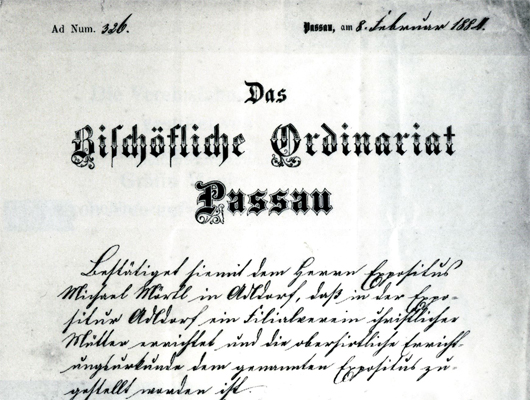 Ad Num. 326.
Passau, am 8. Februar 1881.
Das
Bischöfliche Ordinariat
Passau
Bestätiget hiemit dem Herrn Expositus
Michael Mörtl in Adldorf, daß in der Expo-
situr Adldorf ein Filialverein christlicher
Mütter errichtet und die oberhirtliche Erricht-
ungsurkunde dem genannten Expositus zu-
gestellt worden ist.